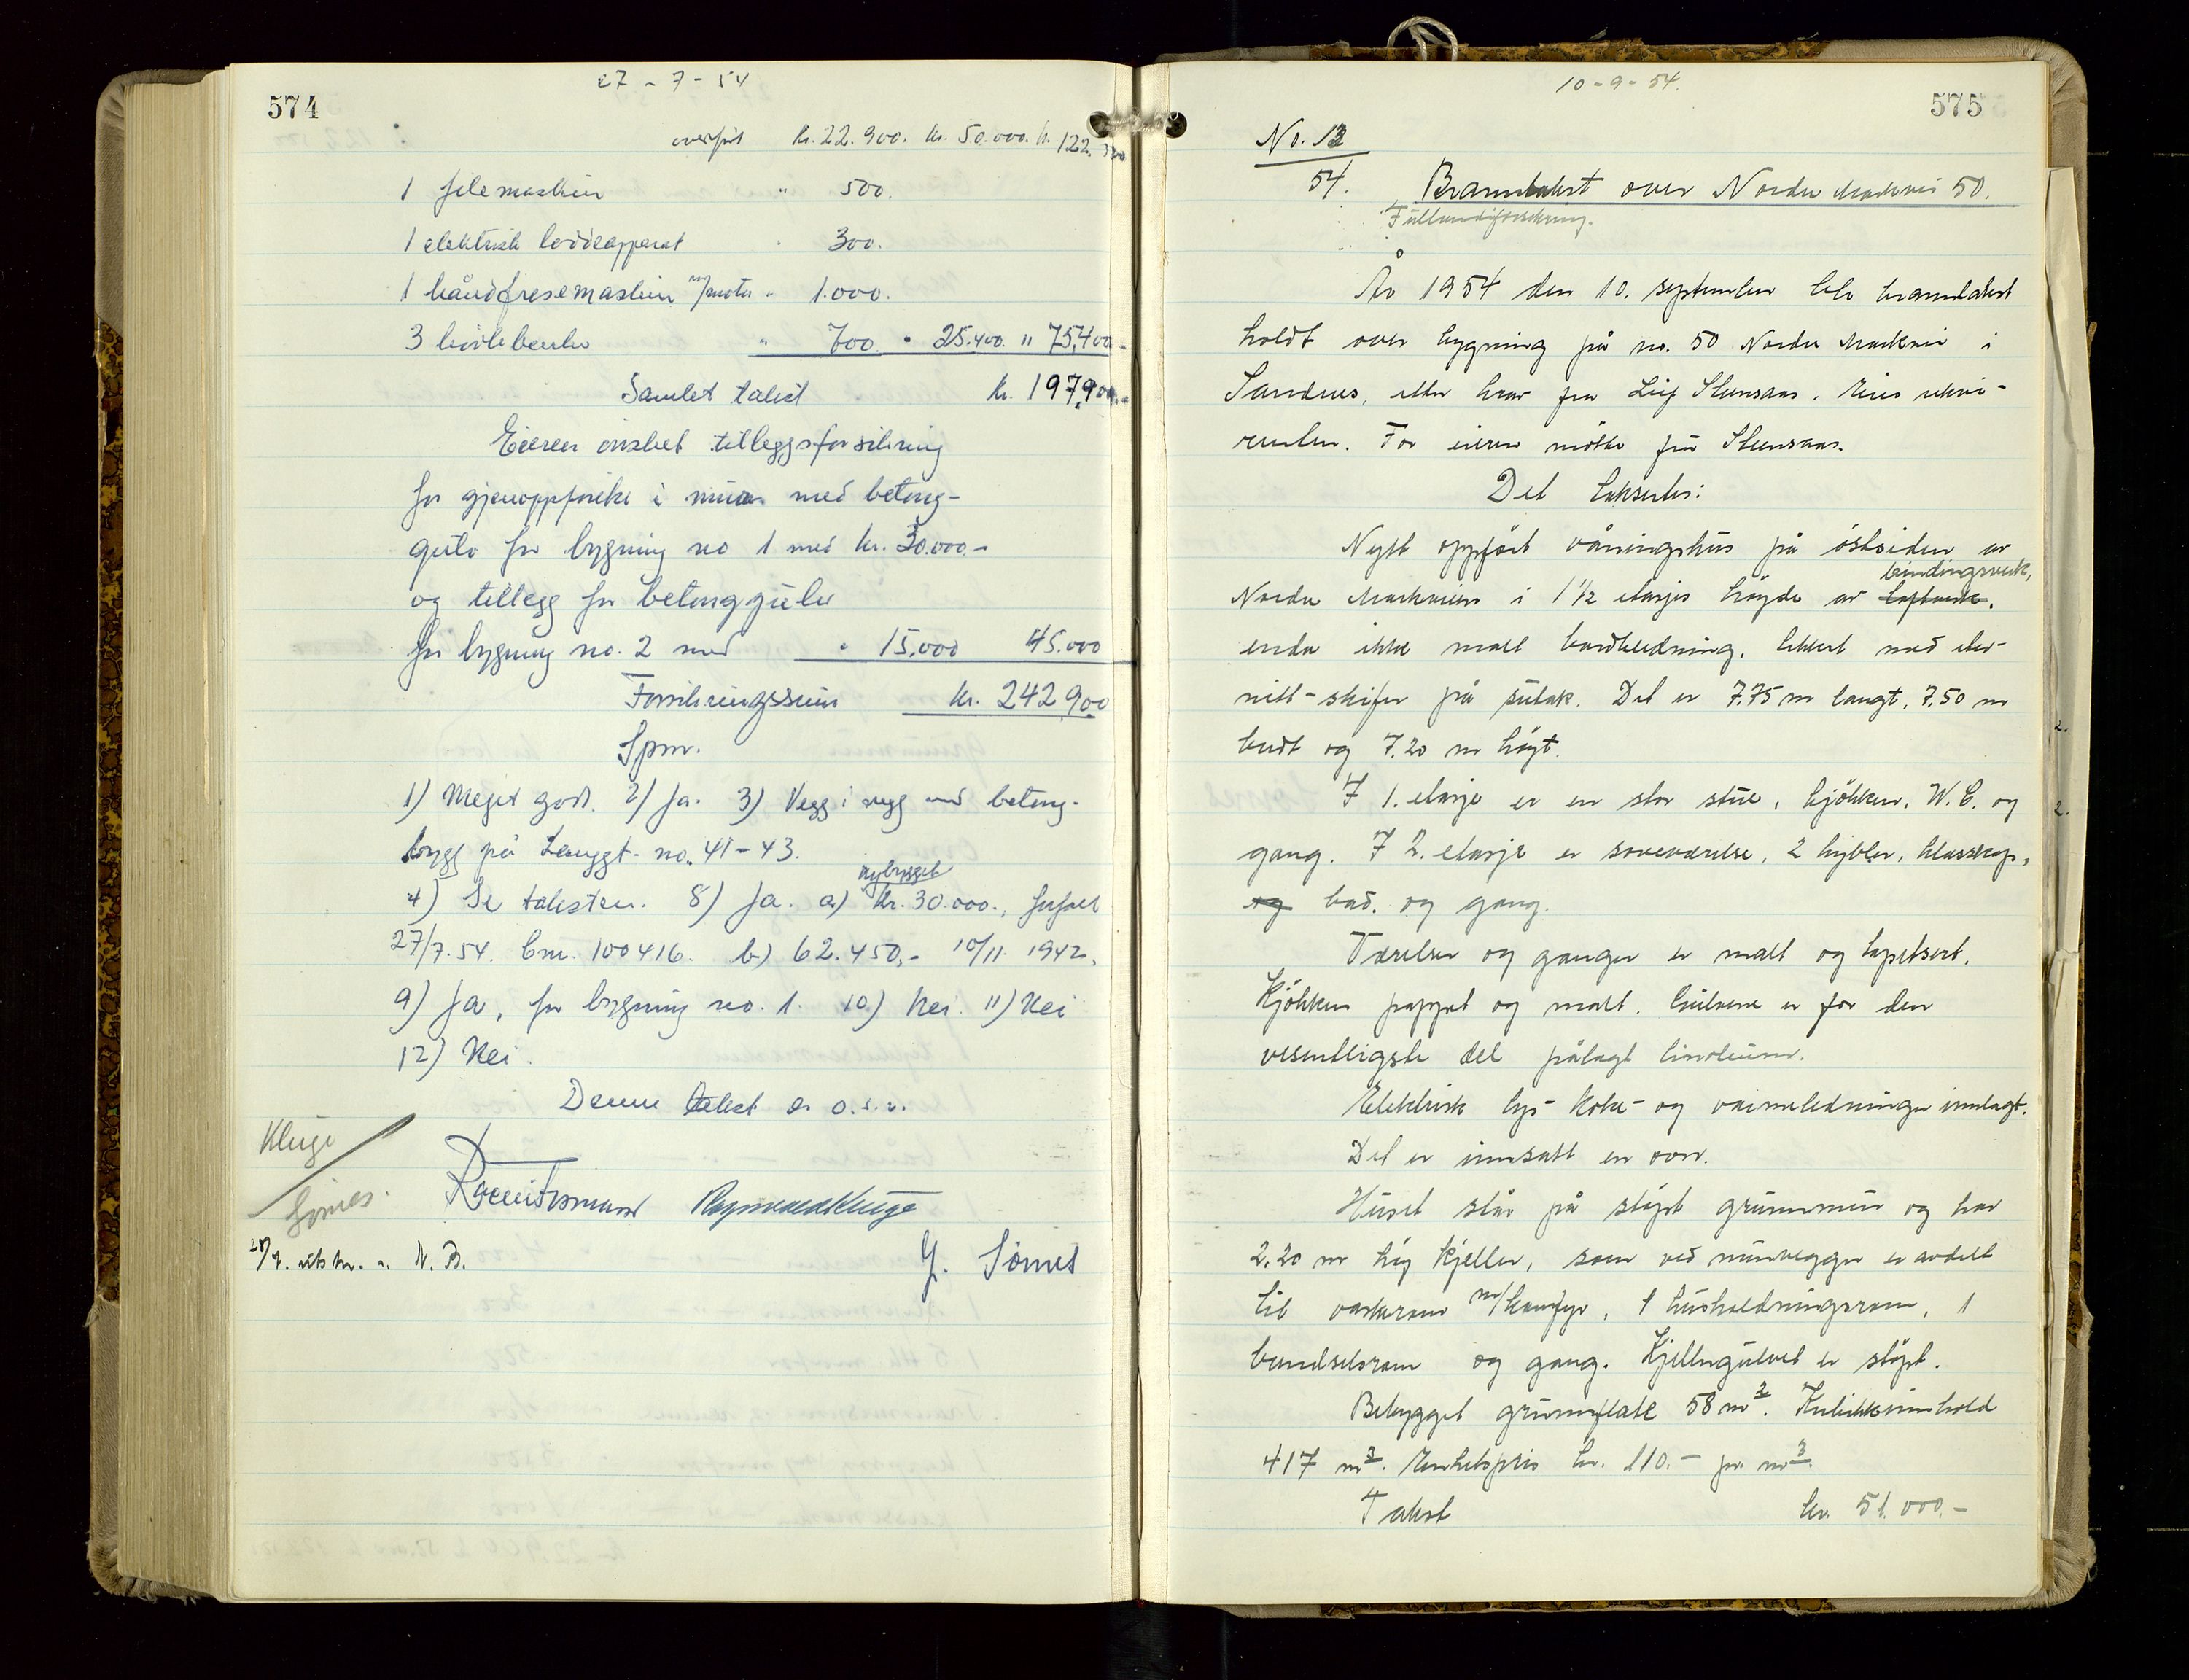 574
27-7-54
overført kr. 22.900. kr. 50.000. kr. 122.500
1 filemaskin " 500.
1 elektrisk loddeapparat " 300.
1 håndfresemaskin m/motor " 1.000.
3 høvlebenker " 700. " 25.400. " 75.400.-
Samlet takst kr. 197.900.-
Eieren ønsket tilleggsforsikring
for gjenoppførelse i mur med betong-
gulv for bygning no 1 med kr. 30.000.-
og tillegg for betonggulv
for bygning no. 2 med " 15.000 45.000
Forsikringssum kr. 242.900
Spm.
1) Meget god. 2) Ja. 3) Vegg i vegg med betong-
bygg på Langgt. no. 41-43.
4) Se taksten. 8) Ja. a) nybygget kr. 30.000.,
27/7.54. Bnr. 100416. b) 62.450,- 10/11 1942.
9) Ja, for bygning no. 1. 10) Nei. 11) Nei
12) Nei.
Denne takst er o.s.v.
Kluge
Sømes.
Ragnvald Kluge
28/7. utskr. a. N.B.
J. Sømes
575
10-9-54.
No. 13
54. Branntakst over Nordre Markvei 50.
Fullverdiforsikring.
År 1954 den 10. september ble branntakst
holdt over bygning på no. 50 Nordre Markvei i
Sandnes, etter krav fra Leif Stensaas. Eiers rekvi-
renten. For eieren møtte fru Stensaas.
Det takseres:
Nytt oppført våningshus på østsiden av
bindingsverk,
Nordre Markveien i 1 1/2 etasjes høyde av laftverk.
enda ikke malt bordkledning. tekket med eter-
nitt-skifer på sutak. Det er 7.75 m langt, 7.50 m
bredt og 7.20 m høgt.
I 1. etasje er en stor stue, kjøkken, W.C. og
gang. I 2. etasje er soveværelse, 2 hybler, klesskap,
og bad. og gang.
Værelser og ganger er malt og tapetsert.
Kjøkken pappet og malt. Gulvene er for den
vesentligste del pålagt linoleum.
Elektrisk lys- koke- og varmeledninger innlagt.
Det er innsatt en ovn.
Huset står på støpt grunnmur og har
2.20 m høg kjeller, som ved murvegger er avdelt
til vaskerom m/komfyr, 1 husholdningsrom, 1
brendselsrom og gang. Kjellergulvet er støpt.
Bebygget grunnflate 58 m2. Kubikkinnhold
417 m3. Enhetspris kr. 110.- pr. m3.
Takst kr. 51.000.-